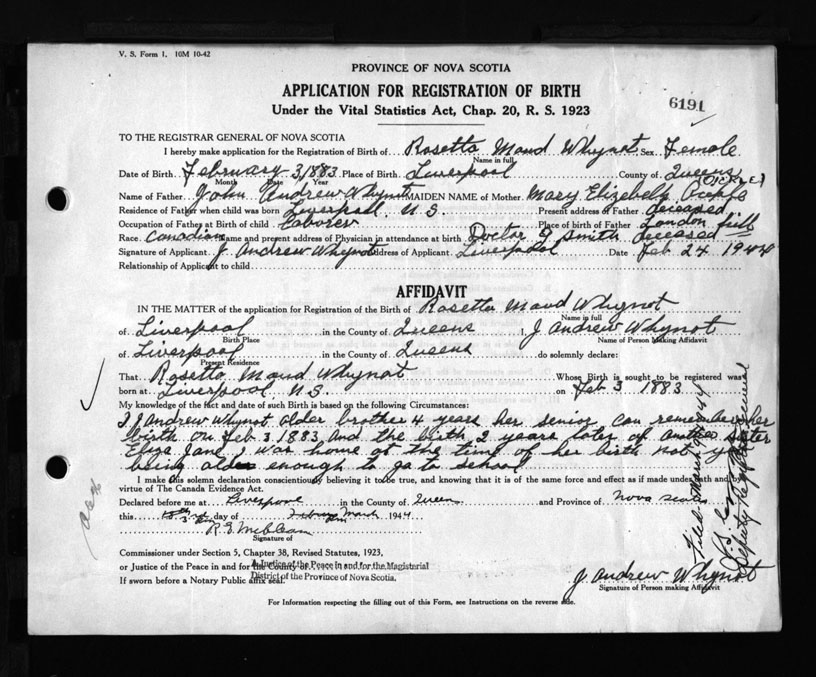 V. S. Form 1. 10M 10-42
PROVINCE OF NOVA SCOTIA
APPLICATION FOR REGISTRATION OF BIRTH
Under the Vital Statistics Act, Chap. 20, R. S. 1923
6191
TO THE REGISTRAR GENERAL OF NOVA SCOTIA
I hereby make application for the Registration of Birth of Rosetta Maud Whynot Sex Female
Name in full
Date of Birth February 3, 1883 Place of Birth Liverpool County of Queens
Month Date Year
Name of Father John Andrew Whynot MAIDEN NAME of Mother Mary Elizebeth
Residence of Father when child was born Liverpool N. S. Present address of Father deceased
Occupation of Father at Birth of child Laborer Place of Birth of Father London
Race Canadian Name and present address of Physician in attendance at birth Doctor Smith deceased
Signature of Applicant J. Andrew Whynot Address of Applicant Liverpool Date Feb 24 1944
Relationship of Applicant to child
AFFIDAVIT
IN THE MATTER of the application for Registration of the Birth of Rosetta Maud Whynot
Name in full
of Liverpool in the County of Queens I, J Andrew Whynot
Birth Place Name of Person Making Affidavit
of Liverpool in the County of Queens do solemnly declare:
Present Residence
That Rosetta Maud Whynot Whose Birth is sought to be registered was
born at Liverpool N.S. on Feb 3 1883
My knowledge of the fact and date of such Birth is based on the following Circumstances:
I J Andrew Whynot older brother 4 years her senior can remember her
birth on Feb. 3. 1883 And the birth 2 years later of another sister
Eliza Jane I was home at the time of her birth not yet
being old enough to go to school
I make this solemn declaration conscientiously believing it to be true, and knowing it is of the same force and effect as if made under oath and by
virtue of The Canada Evidence Act.
Declared before me at Liverpool in the County of Queens and Province of Nova Scotia
this day of March 1944
R. G. McClearn
Signature of
Commissioner under Section 5, Chapter 38, Revised Statutes, 1923,
or Justice of the Peace in and for the County of
A Justice of the Peace in and for the Magisterial
District of the Province of Nova Scotia.
If sworn before a Notary Public affix seal.
J Andrew Whynot
Signature of Person making Affidavit
For Information respecting the filling out of this Form, see Instructions on the reverse side.
Deputy Registrar General